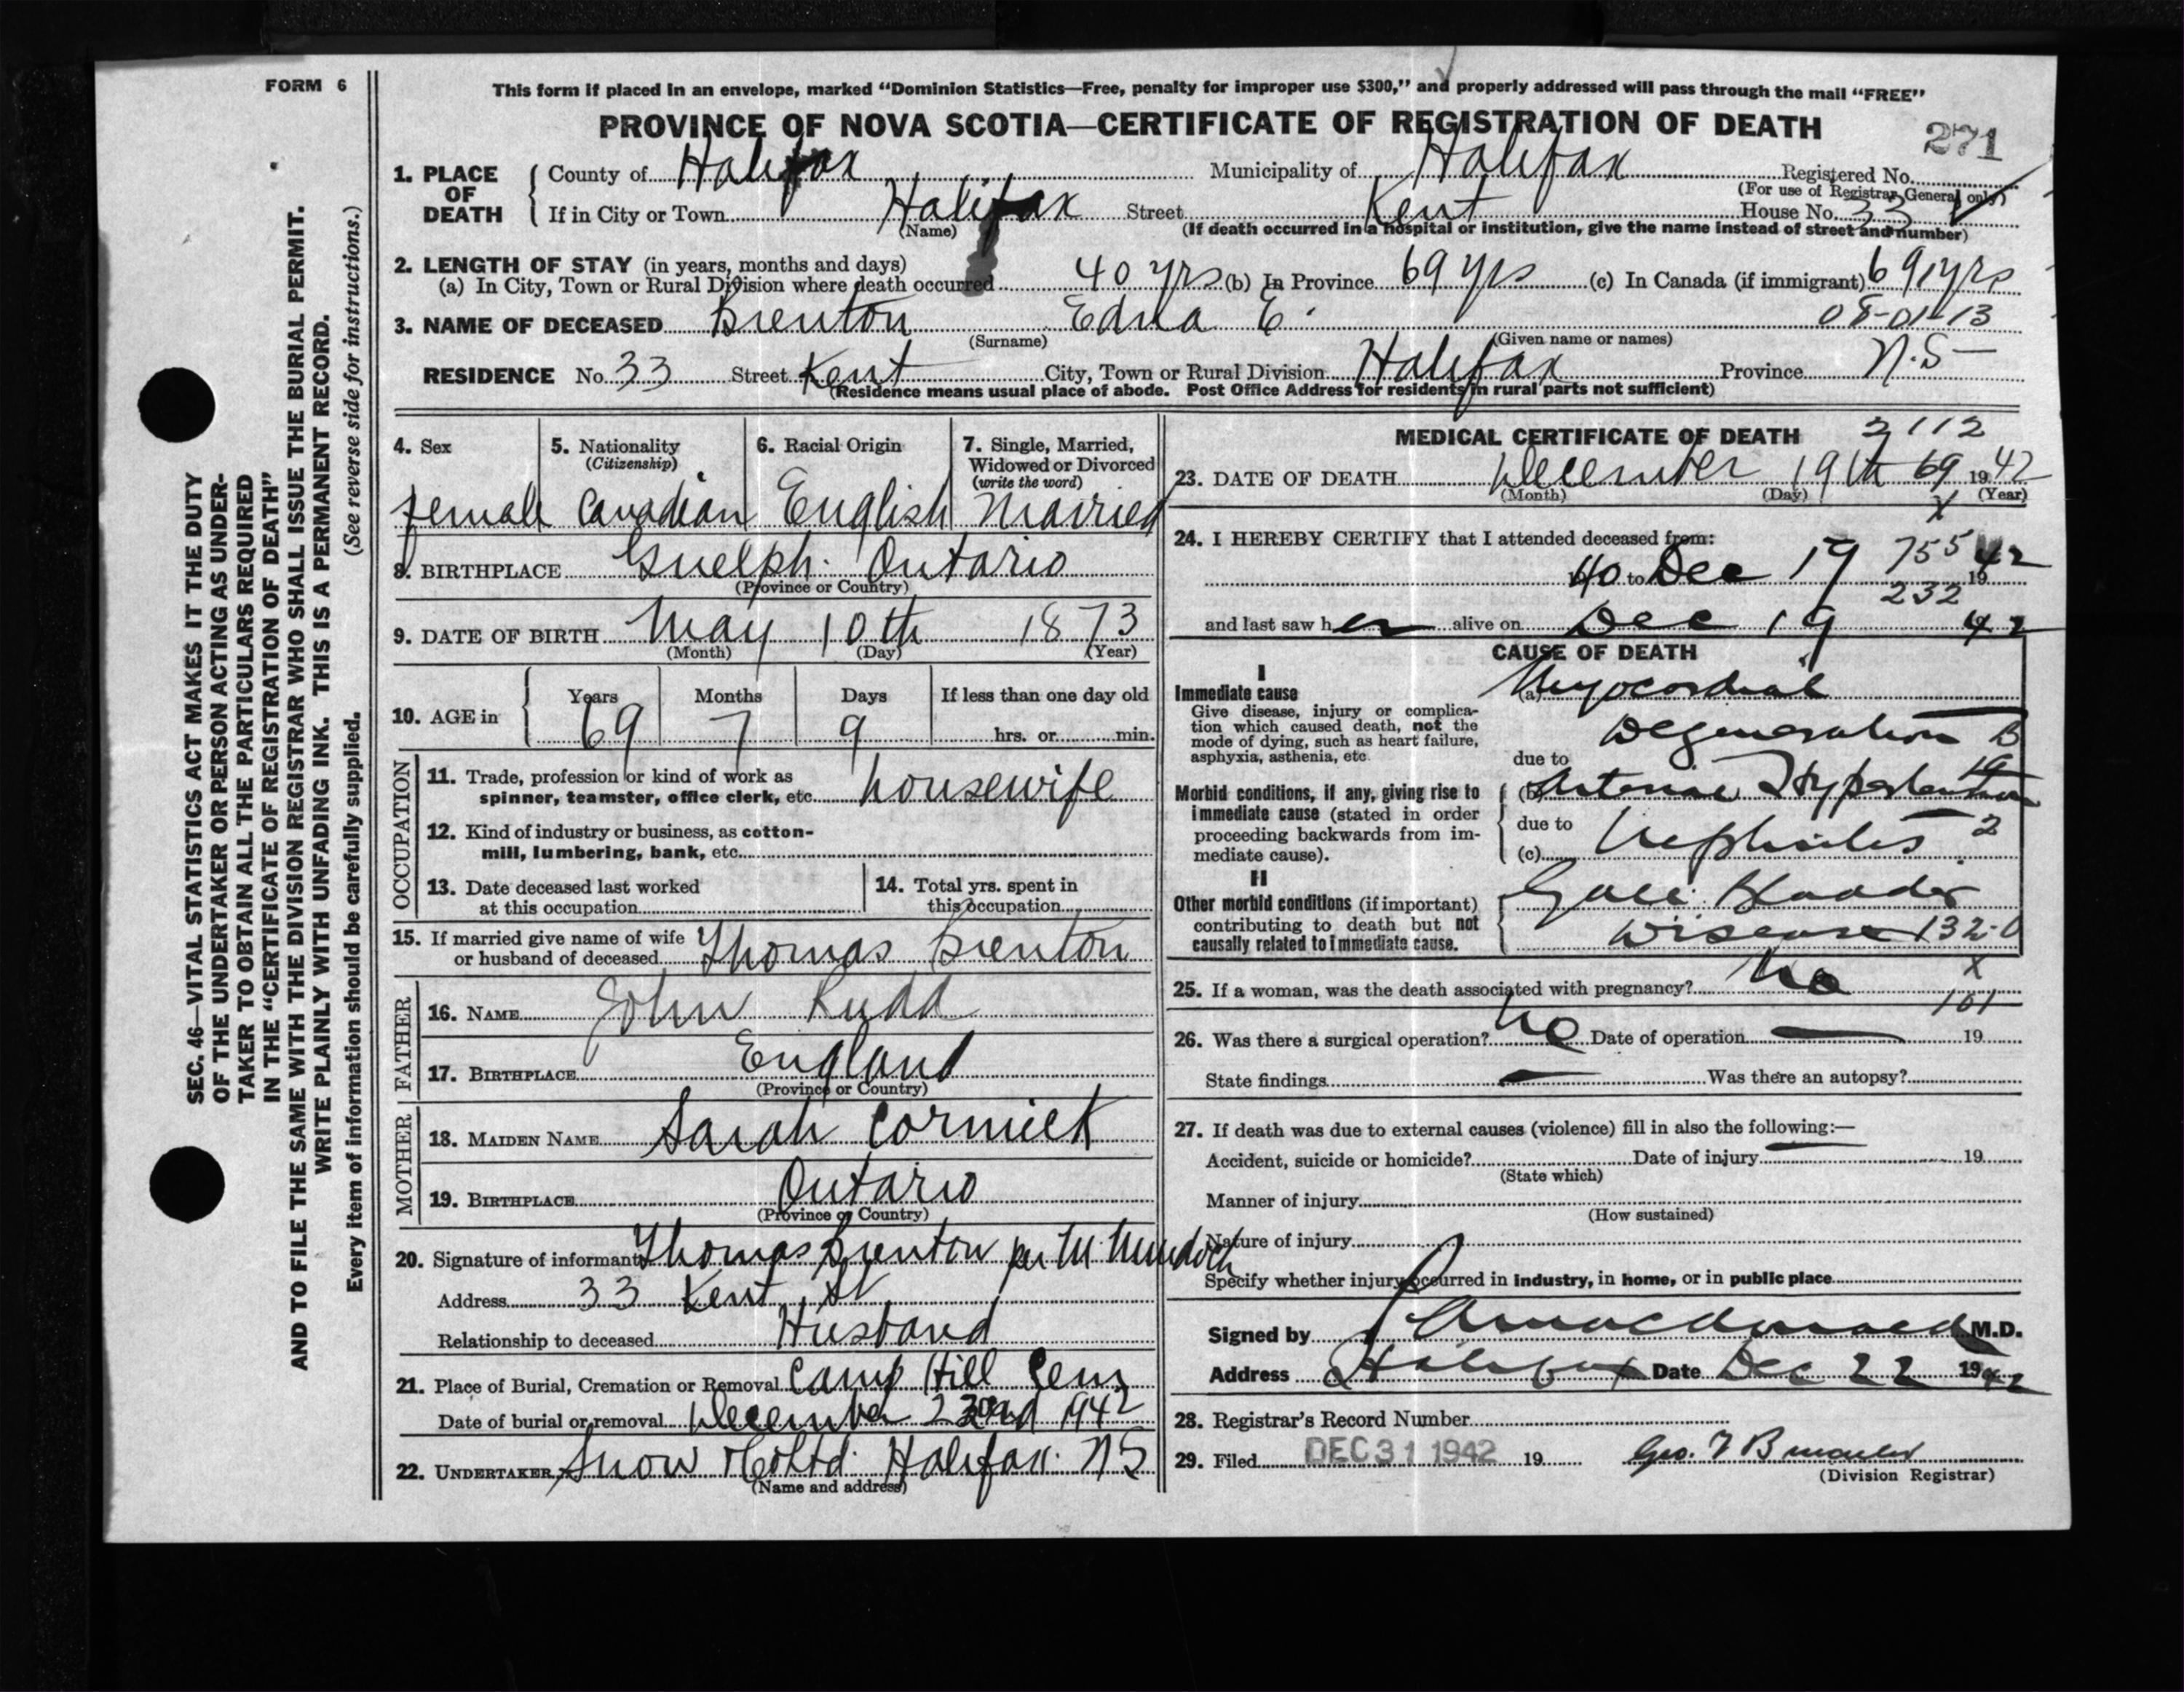 FORM 6
This form if placed in an envelope, marked "Dominion Statistics—Free, penalty for improper use $300," and properly addressed will pass through the mail "FREE"
PROVINCE OF NOVA SCOTIA—CERTIFICATE OF REGISTRATION OF DEATH
271
1. PLACE OF DEATH
County of Halifax Municipality of Halifax Registered No.
(For use of Registrar General only)
If in City or Town Halifax Street Kent House No. 33
(Name) (If death occurred in a hospital or institution, give the name instead of street and number)
2. LENGTH OF STAY (in years, months and days)
(a) In City, Town or Rural Division where death occurred 40 yrs (b) In Province 69 yrs (c) In Canada (if immigrant) 69 yrs
08-01-13
3. NAME OF DECEASED Brenton Edna E.
(Surname) (Given name or names)
RESIDENCE No. 33 Street Kent City, Town or Rural Division Halifax Province N.S
(Residence means usual place of abode. Post Office Address for residents in rural parts not sufficient)
4. Sex 5. Nationality (Citizenship) 6. Racial Origin 7. Single, Married, Widowed or Divorced (write the word)
female Canadian English Married
8. BIRTHPLACE Guelph. Ontario
(Province or Country)
9. DATE OF BIRTH May 10th 1873
(Month) (Day) (Year)
10. AGE in Years Months Days If less than one day old
69 7 9 hrs. or min.
OCCUPATION
11. Trade, profession or kind of work as
spinner, teamster, office clerk, etc. housewife
12. Kind of industry or business, as cotton-
mill, lumbering, bank, etc.
13. Date deceased last worked
at this occupation
14. Total yrs. spent in
this occupation
15. If married give name of wife
or husband of deceased Thomas Brenton
FATHER
16. NAME John Rudd
17. BIRTHPLACE England
(Province or Country)
MOTHER
18. MAIDEN NAME Sarah Cormick
19. BIRTHPLACE Ontario
(Province or Country)
20. Signature of informant Thomas Brenton per M Murdoch
Address 33 Kent St
Relationship to deceased Husband
21. Place of Burial, Cremation or Removal Camp Hill Cem
Date of burial or removal December 1942
22. UNDERTAKER Snow & Co Ltd. Halifax. NS
(Name and address)
MEDICAL CERTIFICATE OF DEATH
2112
23. DATE OF DEATH December 19th 69 1942
(Month) (Day) (Year)
X
24. I HEREBY CERTIFY that I attended deceased from:
40 to Dec 19 755 1942
232
and last saw her alive on Dec 19 42
CAUSE OF DEATH
I
Immediate cause
Give disease, injury or complica-
tion which caused death, not the
mode of dying, such as heart failure,
asphyxia, asthenia, etc
(a) Myocardial
Degeneration B
due to
Morbid conditions, if any, giving rise to
immediate cause (stated in order
proceeding backwards from im-
mediate cause).
(b) Arterial Hypertension
due to
(c) Nephritis 2
II
Other morbid conditions (if important)
contributing to death but not
causally related to immediate cause.
Gall Bladder
Disease 132-0
X
25. If a woman, was the death associated with pregnancy? No
101
26. Was there a surgical operation? No Date of operation — 19
State findings — Was there an autopsy?
27. If death was due to external causes (violence) fill in also the following:—
Accident, suicide or homicide? Date of injury 19
(State which)
Manner of injury
(How sustained)
Nature of injury
Specify whether injury occurred in industry, in home, or in public place
Signed by Macdonald M.D.
Address Halifax Date Dec 22 1942
28. Registrar's Record Number
29. Filed DEC 31 1942 19
(Division Registrar)
SEC. 46—VITAL STATISTICS ACT MAKES IT THE DUTY
OF THE UNDERTAKER OR PERSON ACTING AS UNDER-
TAKER TO OBTAIN ALL THE PARTICULARS REQUIRED
IN THE "CERTIFICATE OF REGISTRATION OF DEATH"
AND TO FILE THE SAME WITH THE DIVISION REGISTRAR WHO SHALL ISSUE THE BURIAL PERMIT.
WRITE PLAINLY WITH UNFADING INK. THIS IS A PERMANENT RECORD.
Every item of information should be carefully supplied. (See reverse side for instructions.)